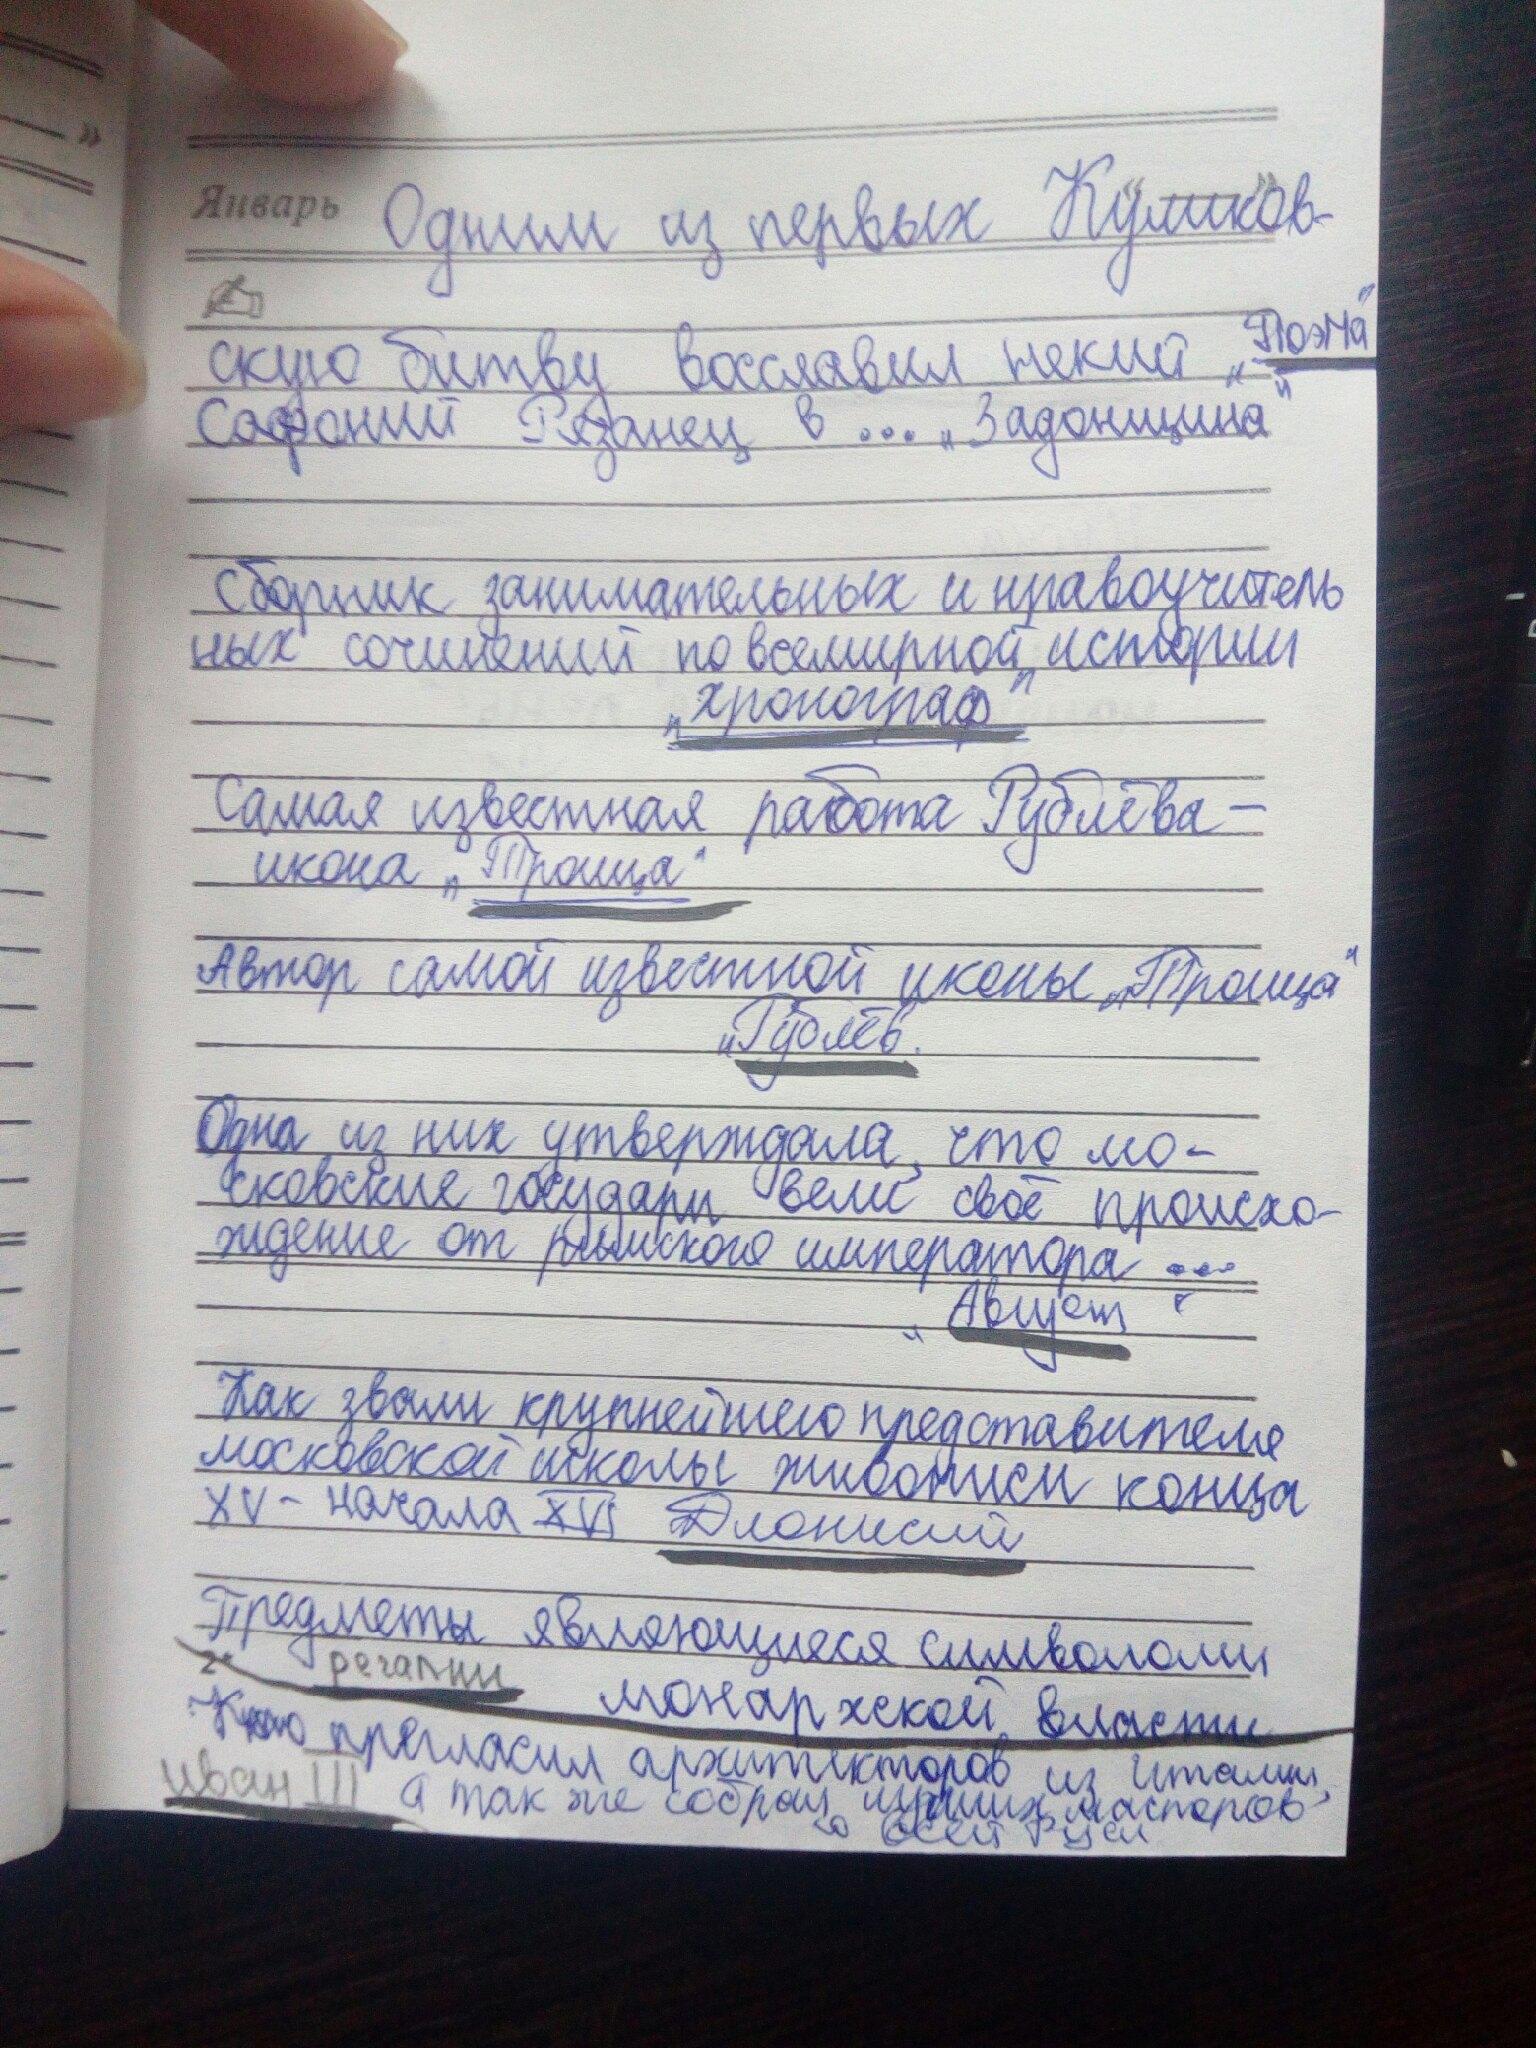 »
Январь Одним из первых Куликов-
„Поэма"
скую битву восславил некий
Софоний Рязанец в ... „Задонщина"
Сборник занимательных и нравоучитель
ных сочинений по всемирной истории
„хронограф"
Самая известная работа Рублёва –
икона „Троица"
Автор самой известной иконы „Троица"
„Рублёв"
Одна из них утверждала, что мо-
сковские государи вели своё происхо-
ждение от римского императора ...
„Август"
Как звали крупнейшего представителя
московской школы живописи конца
XV – начала XVI Дионисий
Предметы являющиеся символами
регалии монархской власти
Кто пригласил архитекторов из Италии,
Иван III а так же собрал лучших мастеров
со всей Руси